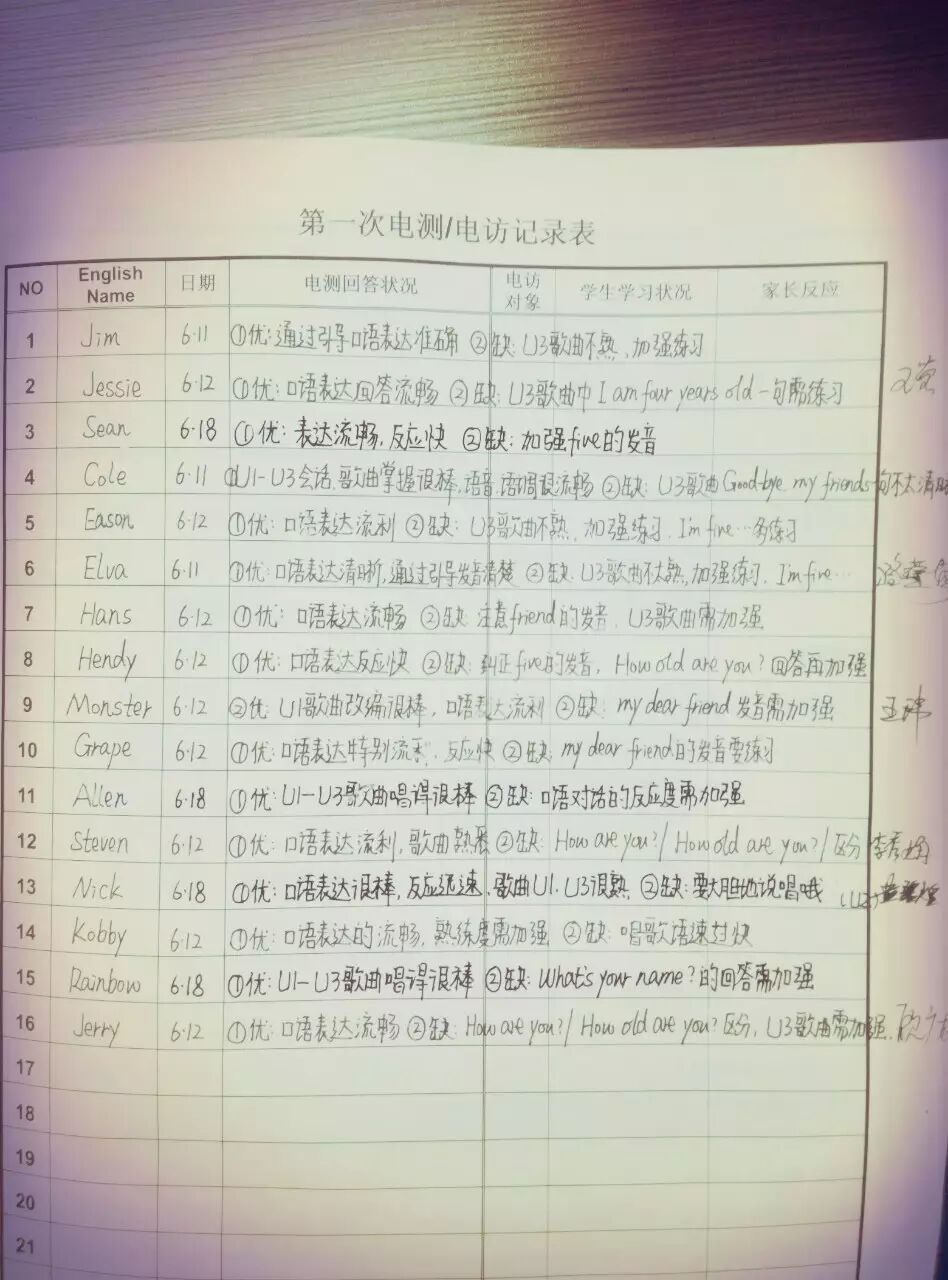 第一次电测/电访记录表
NO English Name 日期 电测回答状况 电访对象 学生学习状况 家长反应
1 Jim 6·11 ①优:通过引导口语表达准确 ②缺:U3歌曲不熟,加强练习
2 Jessie 6·12 ①优:口语表达回答流畅 ②缺:U3歌曲中I am four years old一句需练习
3 Sean 6·18 ①优:表达流畅,反应快 ②缺:加强five的发音
4 Cole 6·11 ①U1-U3会话、歌曲掌握很棒,语音、语调很流畅 ②缺:U3歌曲Good-bye my friends一句不太清晰
5 Eason 6·12 ①优:口语表达流利 ②缺:U3歌曲不熟,加强练习,I'm five…多练习
6 Elva 6·11 ①优:口语表达清晰,通过引导发音清楚 ②缺:U3歌曲不太熟,加强练习,I'm five…
7 Hans 6·12 ①优:口语表达流畅 ②缺:注意friend的发音,U3歌曲需加强
8 Hendy 6·12 ①优:口语表达反应快 ②缺:纠正five的发音,How old are you?回答再加强
9 Monster 6·12 ②优:U1歌曲改编很棒,口语表达流利 ②缺:my dear friend发音需加强 王
10 Grape 6·12 ①优:口语表达特别流利,反应快 ②缺:my dear friend的发音要练习
11 Allen 6·18 ①优:U1-U3歌曲唱得很棒 ②缺:口语对话的反应度需加强
12 Steven 6·12 ①优:口语表达流利,歌曲熟悉 ②缺:How are you?/How old are you?/区分 李
13 Nick 6·18 ①优:口语表达很棒,反应迅速,歌曲U1、U3很熟 ②缺:要大胆地说唱哦(U2)
14 Kobby 6·12 ①优:口语表达的流畅,熟练度需加强 ②缺:唱歌语速过快
15 Rainbow 6·18 ①优:U1-U3歌曲唱得很棒 ②缺:What's your name?的回答需加强
16 Jerry 6·12 ①优:口语表达流畅 ②缺:How are you?/How old are you?区分,U3歌曲需加强.
17
18
19
20
21